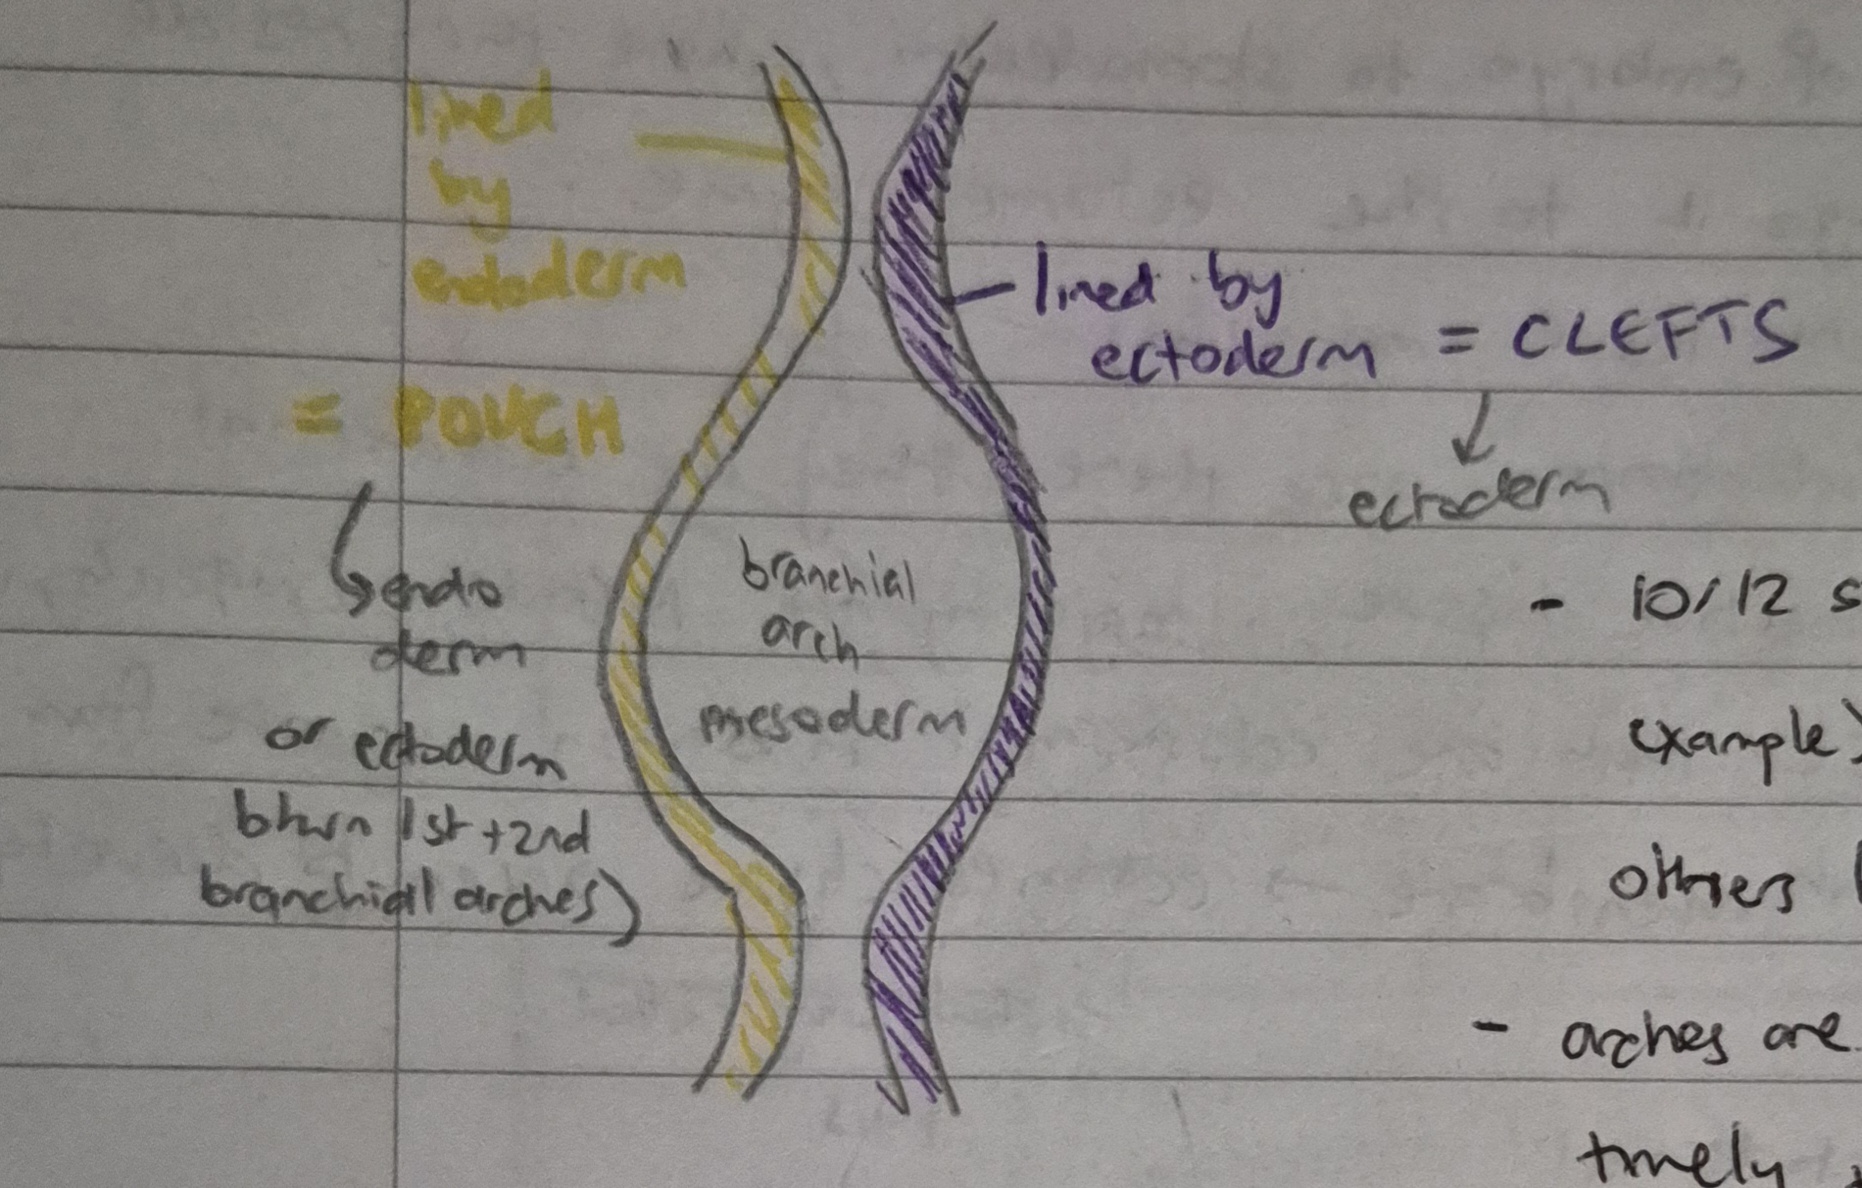 lined
by
endoderm
= POUCH
endo
derm
or ectoderm
btwn 1st + 2nd
branchial arches)
branchial
arch
mesoderm
lined by
ectoderm = CLEFTS
ectoderm
- 10/12 s
example)
others (
- arches are
timely